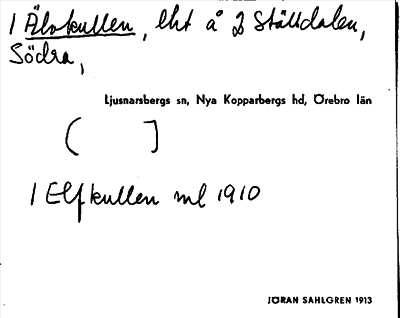 1 Älvkullen, lht å 2 Ställdalen,
Södra,
Ljusnarsbergs sn, Nya Kopparbergs hd, Örebro län
( ]
1 Elfkullen ml 1910
JÖRAN SAHLGREN 1913